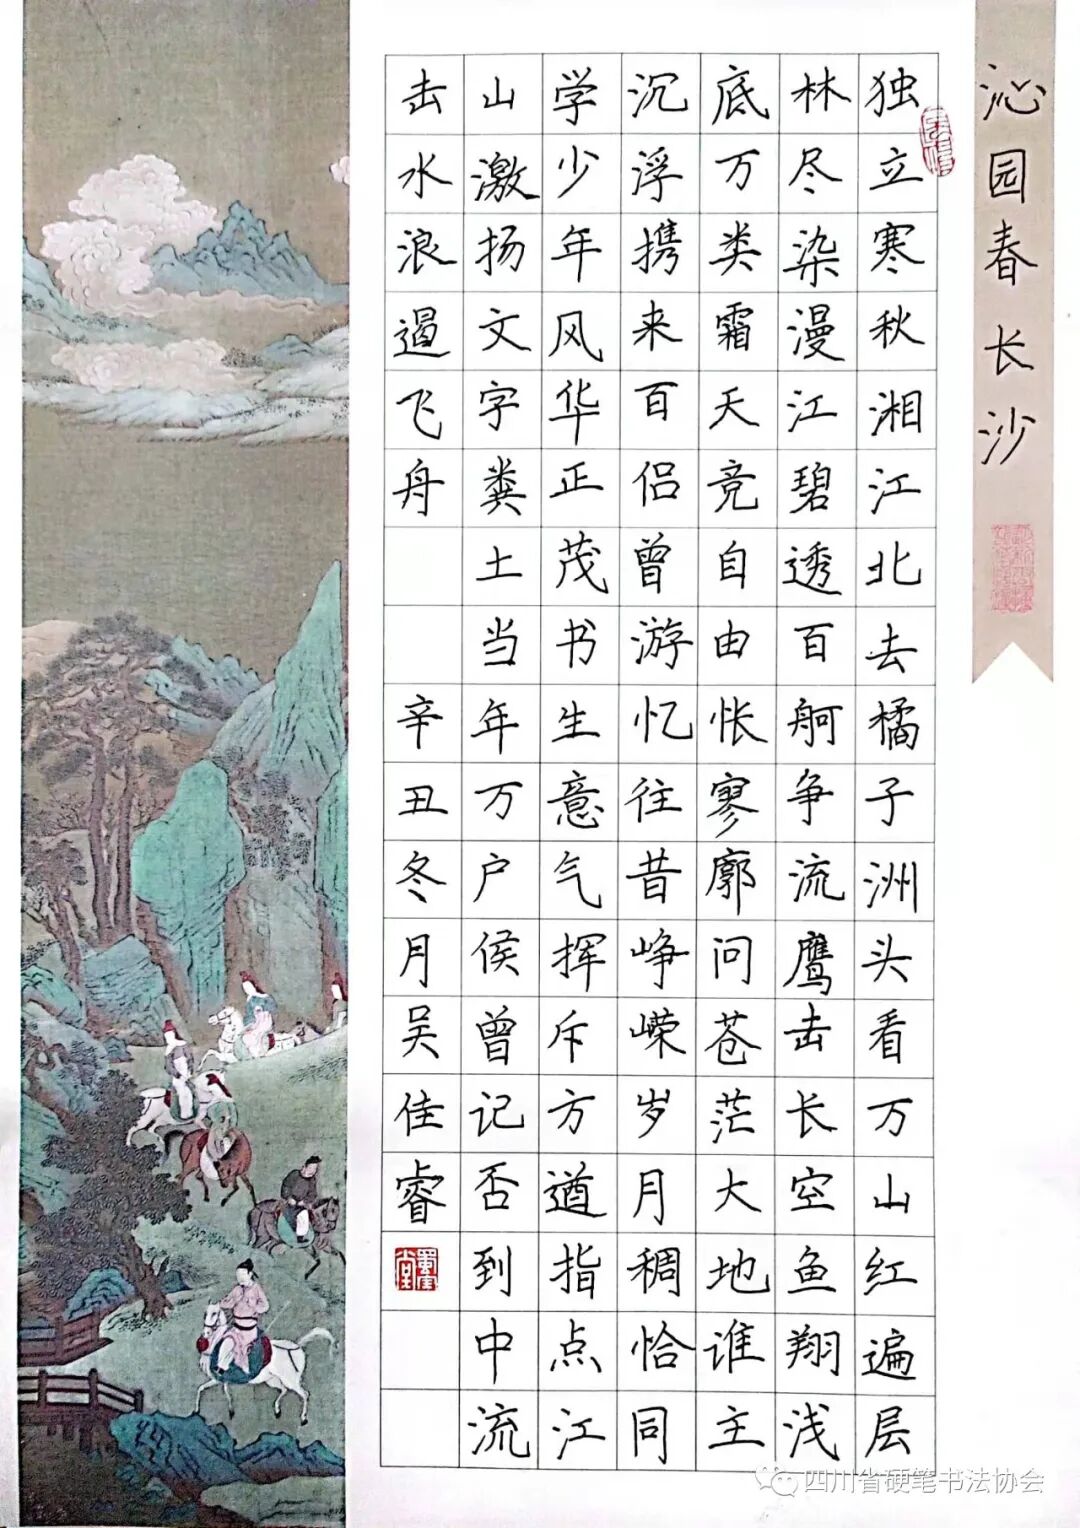 沁园春 长沙
独立寒秋湘江北去橘子洲头看万山红遍层
林尽染漫江碧透百舸争流鹰击长空鱼翔浅
底万类霜天竞自由怅寥廓问苍茫大地谁主
沉浮携来百侣曾游忆往昔峥嵘岁月稠恰同
学少年风华正茂书生意气挥斥方遒指点江
山激扬文字粪土当年万户侯曾记否到中流
击水浪遏飞舟 辛丑冬月吴佳睿
四川省硬笔书法协会